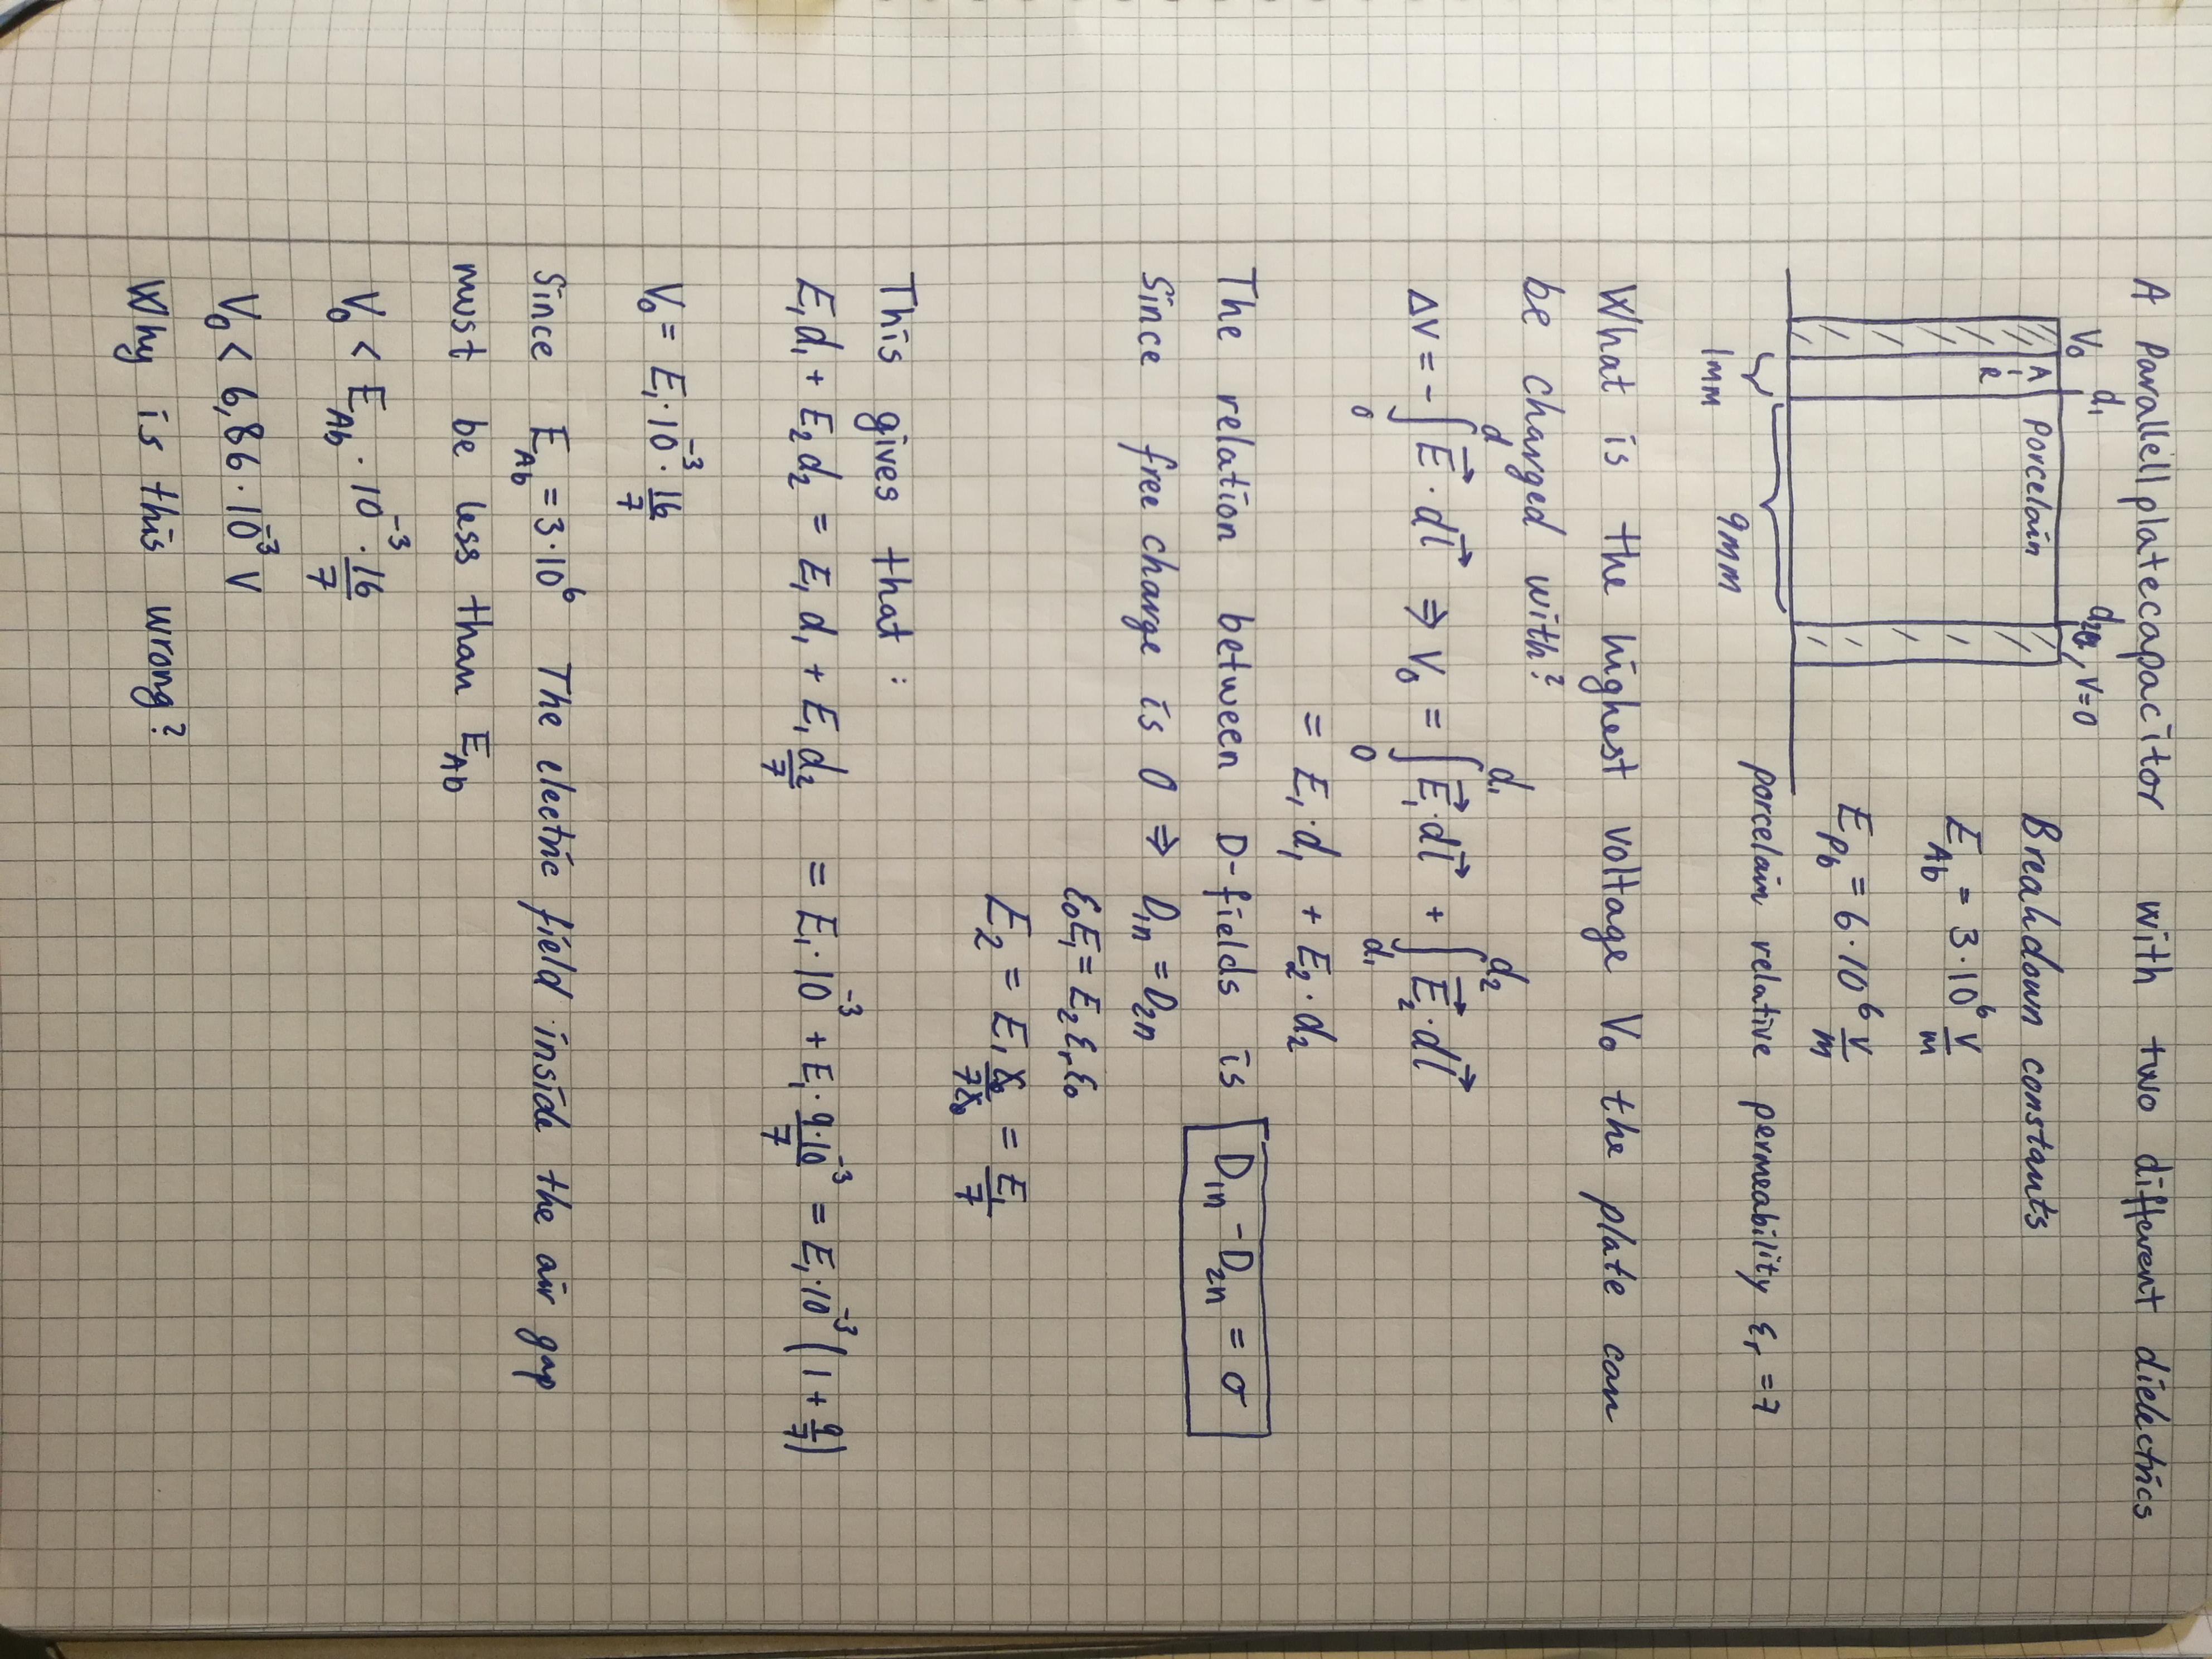 A parallellplatecapacitor with two different dielectrics
V₀ d₁ d₂, V=0
AiR Porcelain
1mm 9mm
Breakdown constants
E_Ab = 3·10⁶ V/m
E_pb = 6·10⁶ V/m
porcelain relative permeability εr = 7
What is the highest voltage V₀ the plate can
be charged with?
ΔV = -∫₀^d E⃗·dl⃗ ⇒ V₀ = ∫₀^d₁ E⃗₁·dl⃗ + ∫_d₁^d₂ E⃗₂·dl⃗
= E₁·d₁ + E₂·d₂
The relation between D-fields is D₁n - D₂n = σ
Since free charge is 0 ⇒ D₁n = D₂n
ε₀E₁ = E₂εrε₀
E₂ = E₁ ε₀/7ε₀ = E₁/7
This gives that:
E₁d₁ + E₂d₂ = E₁d₁ + E₁d₂/7 = E₁·10⁻³ + E₁·9·10⁻³/7 = E₁·10⁻³(1 + 9/7)
V₀ = E₁·10⁻³·16/7
Since E_Ab = 3·10⁶ The electric field inside the air gap
must be less than E_Ab
V₀ < E_Ab·10⁻³·16/7
V₀ < 6,86·10⁻³ V
Why is this wrong?